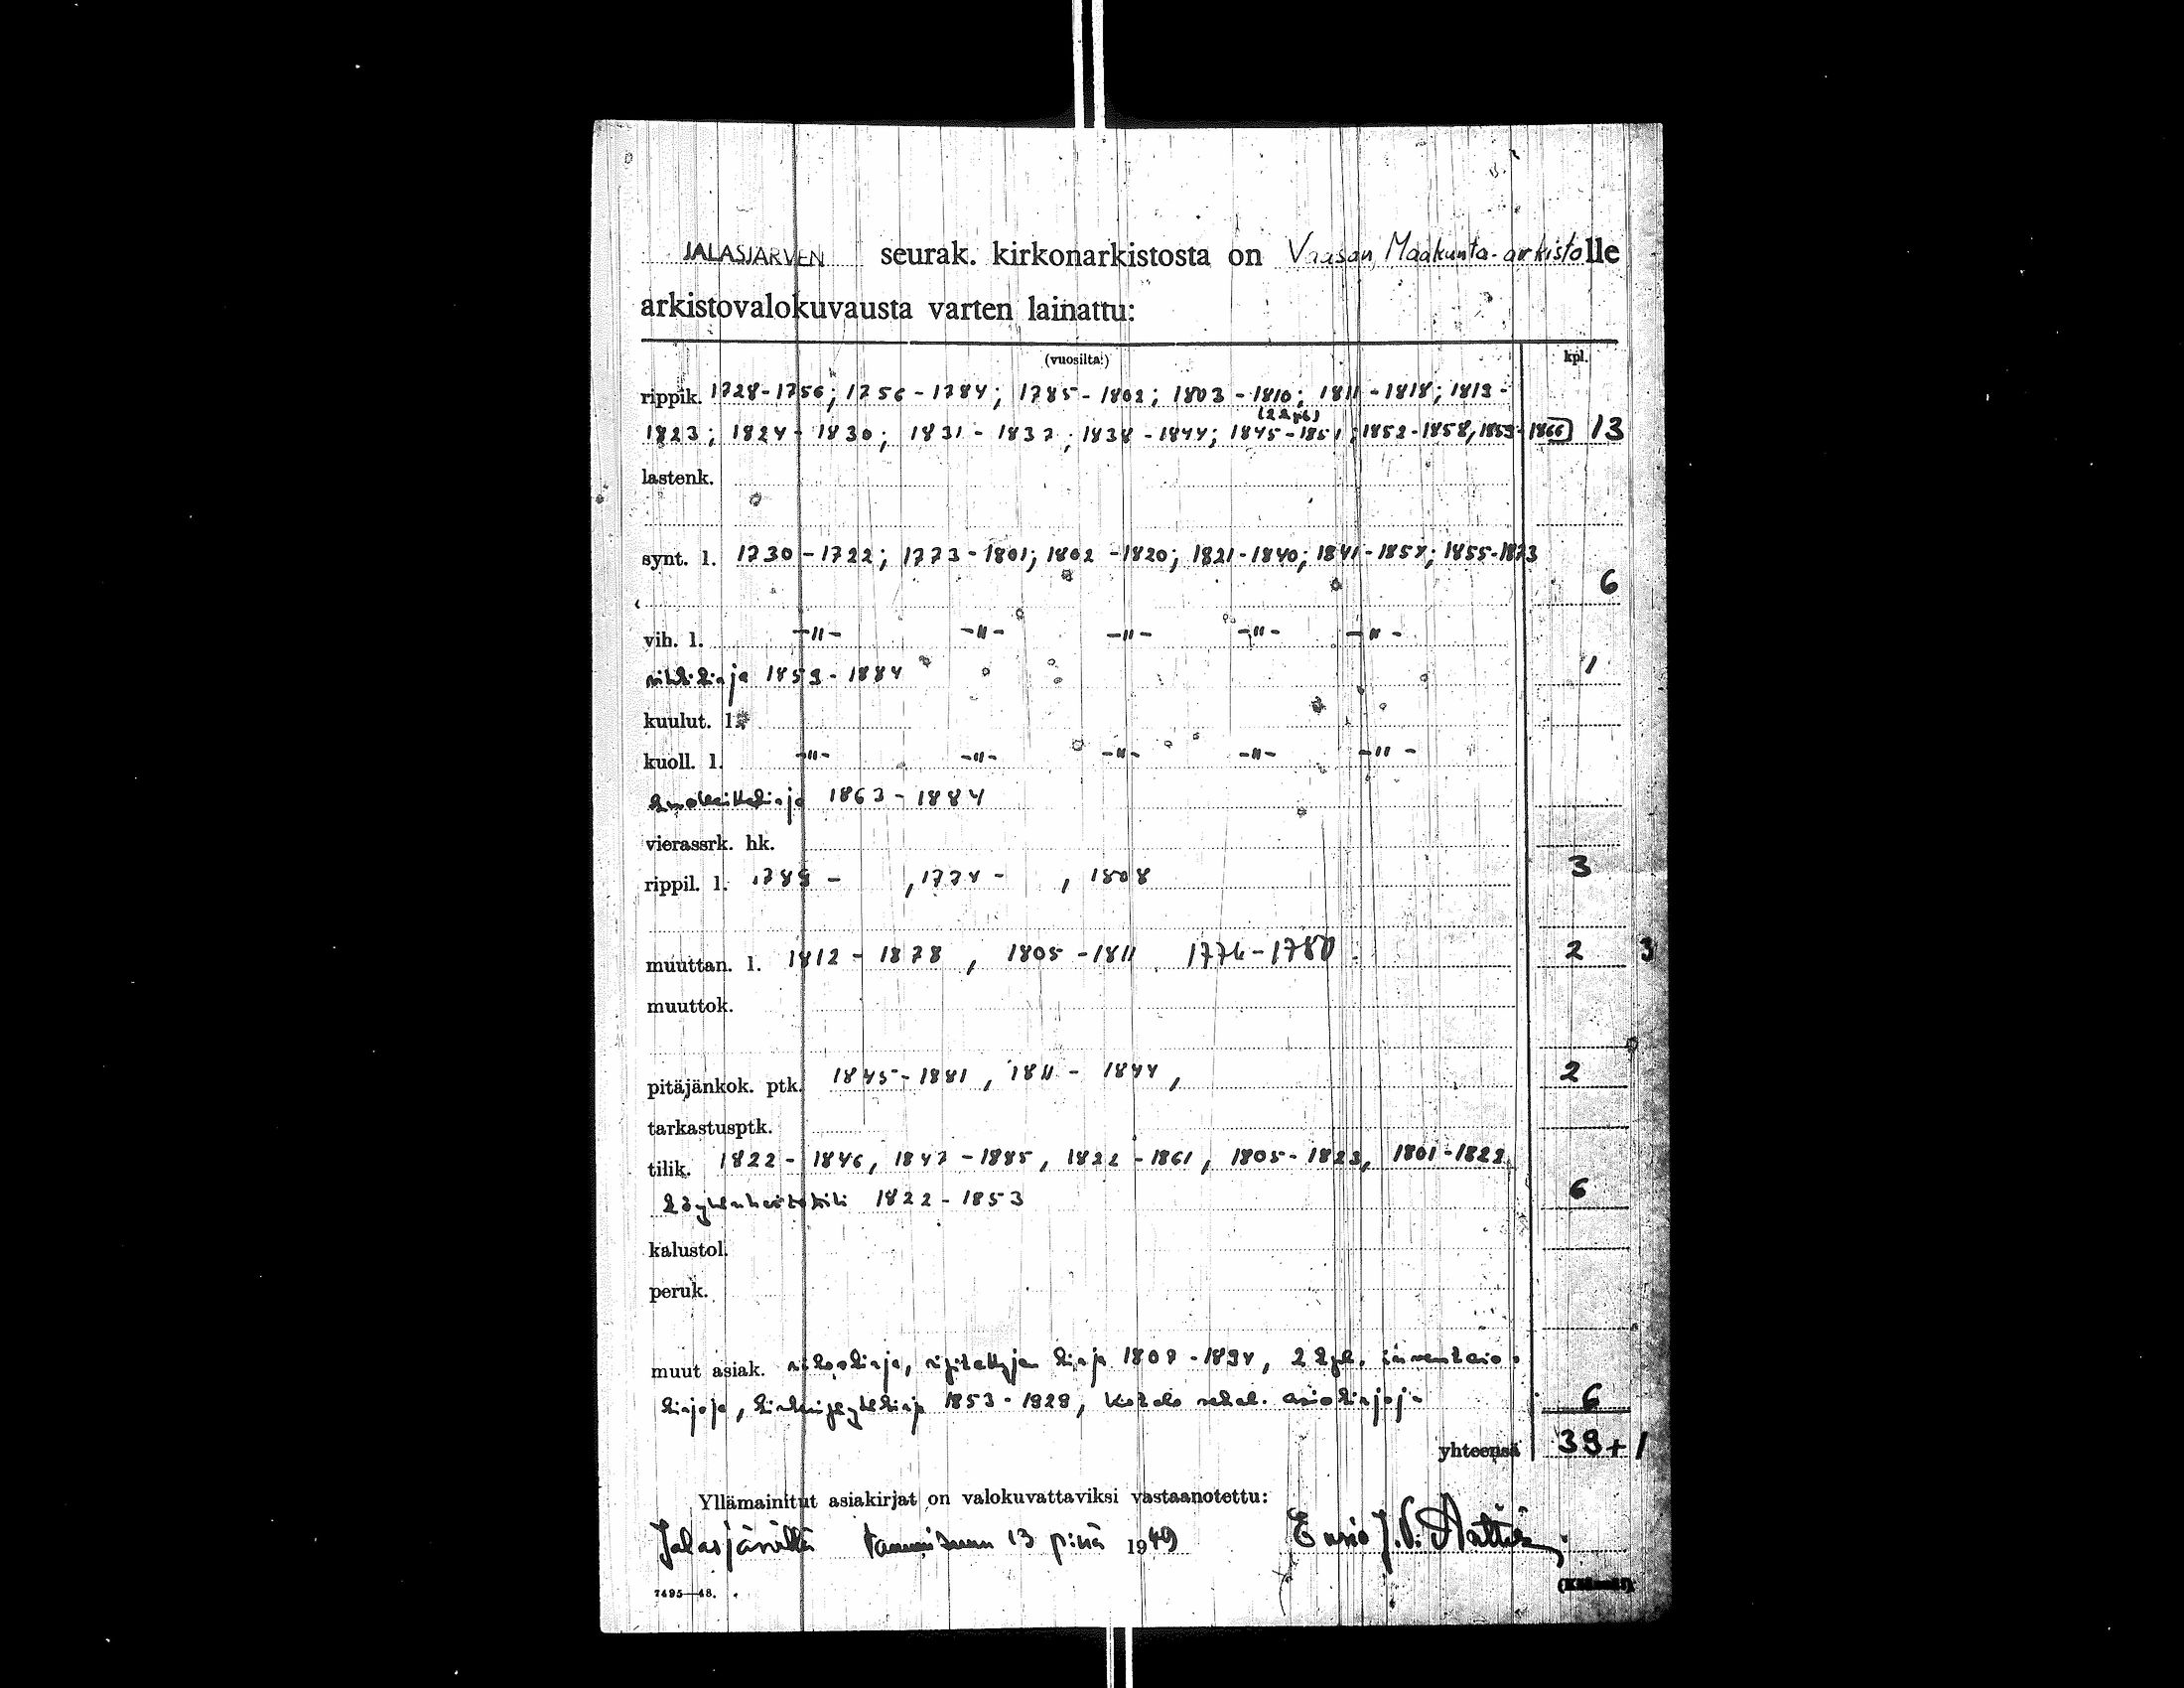 JALASJÄRVEN seurak. kirkonarkistosta on Vaasan Maakunta-arkistolle
arkistovalokuvausta varten lainattu:
(vuosilta:) kpl.
rippik. 1728-1756; 1756-1784; 1785-1802; 1803-1810; 1811-1818; 1813-
(2 kpl)
1823; 1824-1830; 1831-1837; 1838-1844; 1845-1851; 1852-1858, 1859-1866 13
lastenk.
synt. l. 1730-1722; 1773-1801; 1802-1820; 1821-1840; 1841-1854; 1855-1873
6
vih. l. -"- -"- -"- -"- -"-
vihkikirja 1859-1884 1
kuulut. l.
kuoll. l. -"- -"- -"- -"- -"-
1863-1884
vierassrk. hk.
rippil. l. 1789 - , 1774 - , 1808 3
muuttan. l. 1812-1878, 1805-1811 1774-1780. 2 3
muuttok.
pitäjänkok. ptk. 1845-1881, 1811-1844, 2
tarkastusptk.
tilik. 1822-1846, 1847-1885, 1822-1861, 1805-1823, 1801-1822,
1822-1853 6
kalustol.
peruk.
muut asiak. kirja 1808-1894, 2 kpl. inventaio-
kirjoja, 1853-1929, asiakirjoja 6
yhteensä 39+1
Yllämainitut asiakirjat on valokuvattaviksi vastaanotettu:
Jalasjärvellä tammikuun 13 p:nä 1949 Ensio J. V.
7495—48.